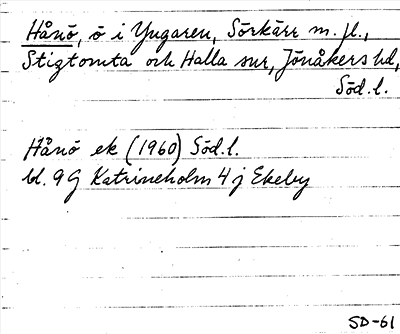 Hånö, ö i Yngaren, Sörkärr m. fl.,
Stigtomta och Halla snr, Jönåkers hd,
Söd. l.
Hånö ek (1960) Söd. l.
bl. 9G Katrineholm 4 j Ekeby
SD-61